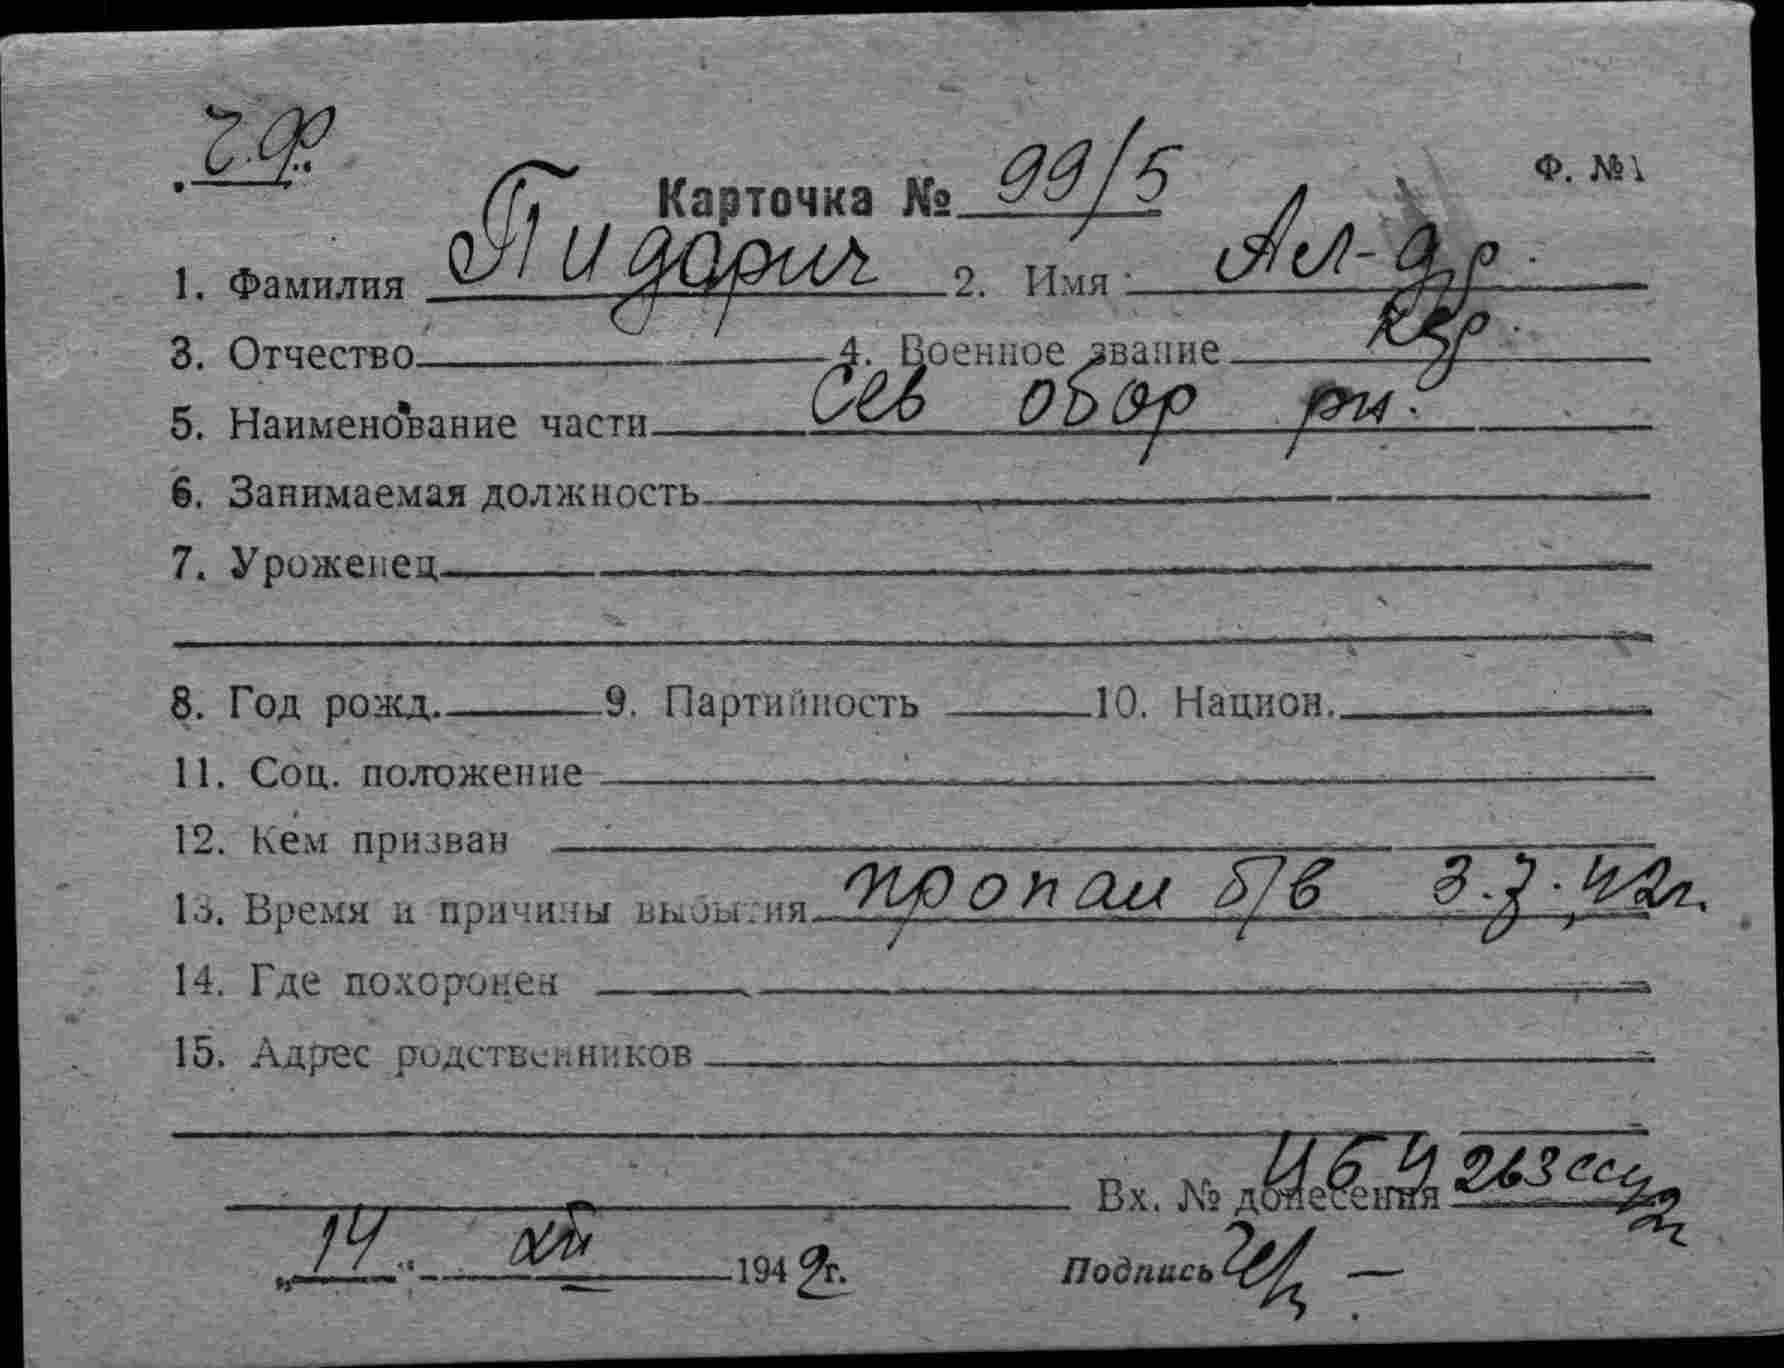 Ч.Ф.
Карточка № 99/5
Ф. №1
1. Фамилия Пидарич 2. Имя Ал-др.
3. Отчество 4. Военное звание кр.
5. Наименование части Сев обор рн.
6. Занимаемая должность
7. Уроженец
8. Год рожд. 9. Партийность 10. Национ.
11. Соц. положение
12. Кем призван
13. Время и причины выбытия пропал б/в 3.7.42г.
14. Где похоронен
15. Адрес родственников
Вх. № донесения 263сс
„14“ XII 1942г.
Подпись